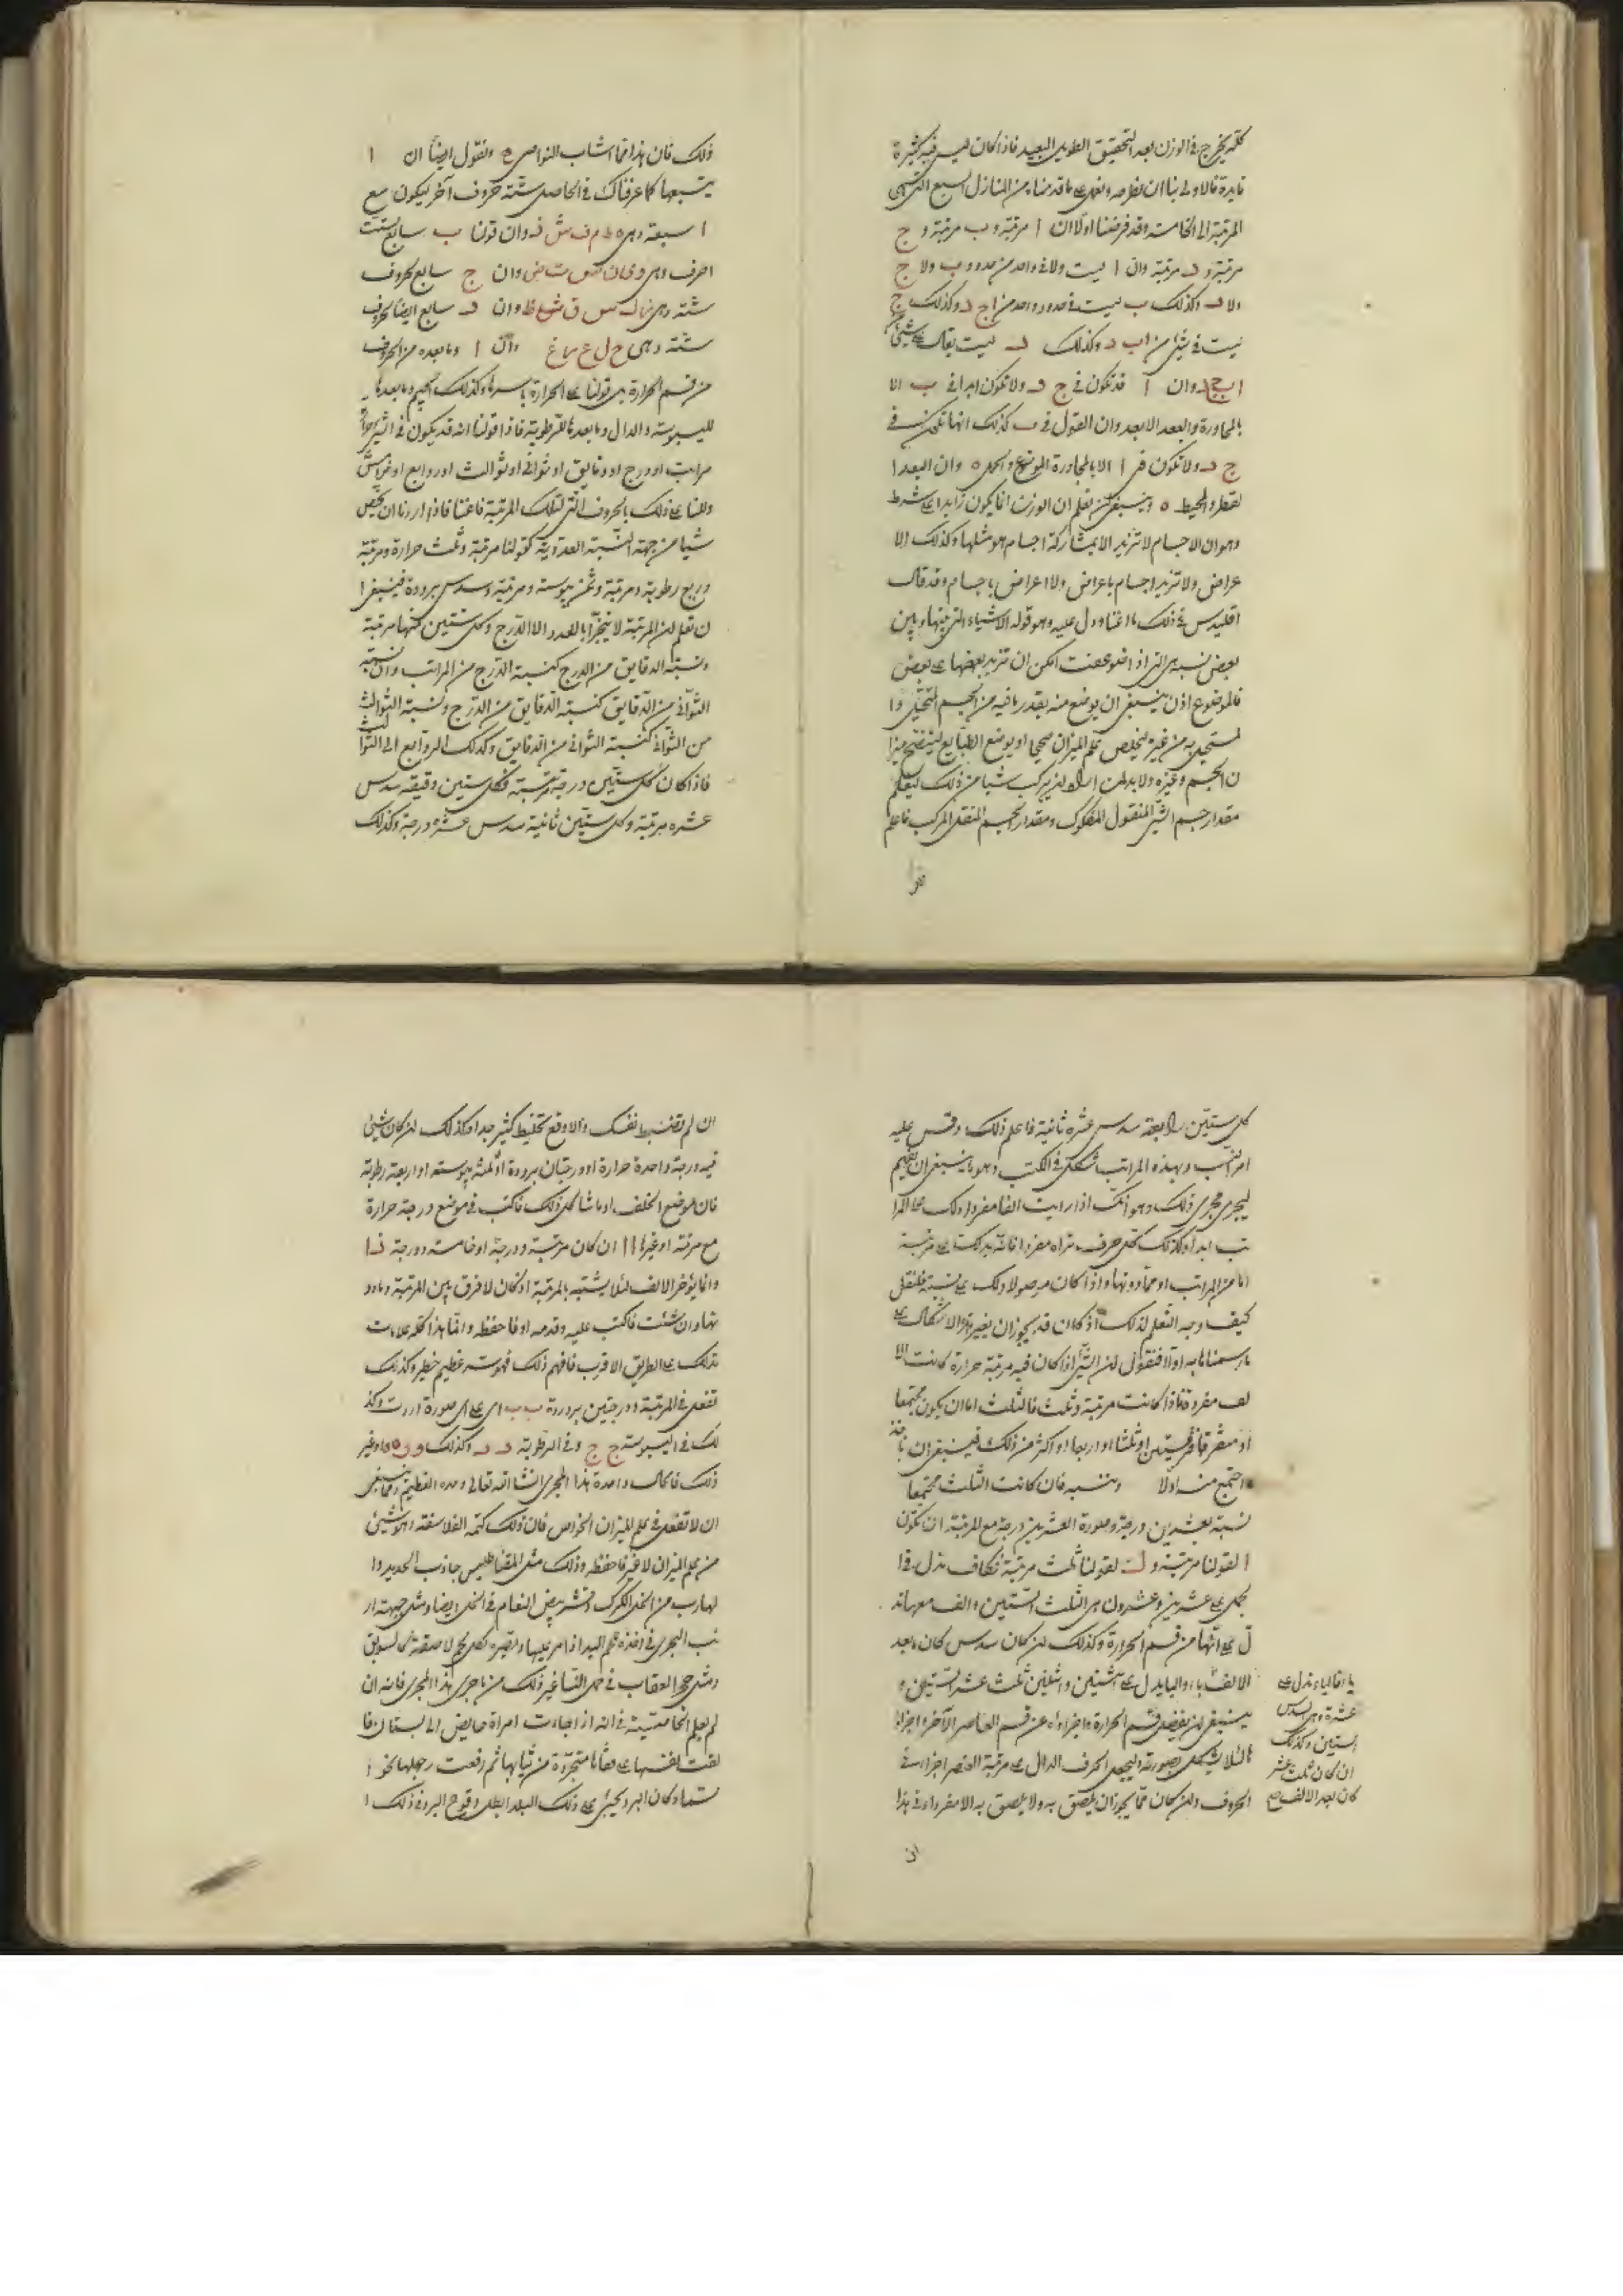 كلّه يخرج في الوزن بعد التحقيق الطويل البعيد فاذا كان ليس فيه كثيرة
فايدة فالاولى بنا ان نطرحه ونعمل على ما قدمناه من المنازل السبع التي هي
المرتبة الى الخامسة وقد فرضنا اولا ان ا مرتبة و ب مرتبة و ج
مرتبة و د مرتبة وان ا ليست ولا في واحد من حدود ب ولا ج
ولا د وكذلك ب ليست في حدود واحد من ا ج د وكذلك ج
ليست في شيء من ا ب د وكذلك د ليست يقال على شيء
ا ب ج وان ا قد تكون في ج د ولا تكون ابدا في ب الا
بالمجاورة والبعد الابعد وان القول في ب كذلك انها تكون في
ج د ولا تكون في ا الا بالمجاورة الموضع والحمل ه وان البعد ا
لقطر والمحيط ه وينبغي ان تعلم ان الوزن انما يكون زايدا على شرط
وهو ان الاجسام لا تزيد الا بمشاركة اجسام هو مثلها وكذلك الا
عراض ولا تزيد اجسام باعراض ولا اعراض باجسام وقد قال
اقليدس في ذلك ما اغنا ودل عليه وهو قوله الاشياء التي بينها وبين
بعض نسب هي التي اذا ضوعفت امكن ان تزيد بعضها على بعض
فالموضوع اذن ينبغي ان يوضع منه بقدر ما فيه من الجسم المتخيل وا
لمستحيل به من غيره ليخلص علم الميزان صحيحا او يوضع الطبايع ليتضح ميزا
ن الجسم وغيره ولا بد لمن اراد ان يركب شيئا من ذلك ليعلم
مقدار جسم الشيء المنقول المفكوك ومقدار الجسم المنقل المركب فاعلم
ذلك فان هذا مما اشاب الخواص ه ونقول ايضا ان ا
يتبعها كما عرفناك في الحاصل ستة حروف آخر ليكون مع
ا سبعة وهى ه ط م ف ش ذ وان قولنا ب سابع لست
احرف وهى و ى ن ص ت ض وان ج سابع لحروف
ستة وهى ز ك س ق ث ظ وان د سابع ايضا لحروف
ستة وهى ح ل ع ر خ غ وان ا وما بعده من الحروف
من قسم الحرارة هي قولنا على الحرارة باسرها وكذلك الجيم وما بعدها
لليبوسة والدال وما بعدها للرطوبة فاذا قولنا انه قد يكون في الشيء حرارة
مراتب او درج او دقايق او ثواني او ثوالث او روابع او خوامس
دللنا على ذلك بالحروف التي لتلك المرتبة فاغنا فاذا اردنا ان نخص
شيئا من جهة النسبة العددية كقولنا مرتبة وثلث حرارة ومرتبة
وربع رطوبة ومرتبة وثمن يبوسة ومرتبة وسدس برودة فينبغي ا
ن تعلم ان المرتبة لا يتجزا بالعدد الا الدرج وكل ستين منها مرتبة
ونسبة الدقايق من الدرج كنسبة الدرج من المراتب وان نسبة
الثواني من الدقايق كنسبة الدقايق من الدرج ونسبة الثوالث
من الثواني كنسبة الثواني من الدقايق وكذلك الروابع الى الثوالث
فاذا كان كل ستين درجة مرتبة فكل ستين دقيقة سدس
عشره مرتبة وكل ستين ثانية سدس عشره درجة وكذلك
كل ستين رابعة سدس عشره ثانية فاعلم ذلك وقس عليه
امر النسب وبهذه المراتب شكل في الكتب وهو ما ينبغي ان تعلم
ليجرى مجرى ذلك وهو انك اذا رايت الفا مفردا دلك على المرا
تب ابدا وكذلك كل حرف تراه مفردا فانه يدلك على مرتبة
اما من المراتب او مما دونها واذا كان موصولا دلك على نسبة فلنقل
كيف وجه التعلم لذلك اذ كان قد يجوز ان يغير هذا الاشكال على
ما رسمناه به اولا فنقول ان الشيء اذا كان فيه مرتبة حرارة كانت الا
لف مفردة فاذا كانت مرتبة وثلث فالثلث اما ان يكون مجتمعا
او متفرقا في قسمين او ثلثا او اربعا او اكثر من ذلك فينبغي ان ناخذ
ما اجتمع منه اولا وننسبه فان كانت الثلث مجتمعا
نسبة بعشرين درجة وصورة العشرين درجة مع المرتبة ان تكون
ا لقولنا مرتبة و ك لقولنا ثلث مرتبة فكاف تدل في ا
لجمل على عشرين وعشرون هي الثلث الستين والف معها تد
ل على انها من قسم الحرارة وكذلك ان كان سدس كان بعد
الالف باء والبا يدل على اثنين واثنين ثلث عشر الستين و
ينبغي ان يفضل قسم الحرارة واجزاءه عن قسم العناصر الآخر واجزا
ئها لئلا يشكل بصورته وليجعل الحرف الدال على مرتبة العنصر اجزاءه في
الحروف وان كان مما يجوز ان يلصق به ولا يلصق به الا مفردا وفي هذا
يا فالياء تدل على
عشرة وهى سدس
الستين وكذلك
ان كان ثلث عشر
كان بعد الالف صح
ان لم تضبط نفسك والا وقع تخليط كثير جدا وكذلك ان كان شيء
فيه درجة واحدة حرارة او درجتان برودة او ثلثة يبوسة او اربعة رطوبة
فان موضع الخلف او ما شاكل ذلك فاكتب في موضع درجة حرارة
مع مرتبة او غيرها ا ا ان كان مرتبة ودرجة او خامسة ودرجة ذ ا
وانما يؤخر الالف لئلا يشتبه بالمرتبة اذ كان لا فرق بين المرتبة وما دو
نها وان شئت فاكتب عليه وقدمه او فاحفظه وانما هذا كله علامات
تدلك على الطريق الاقرب فافهم ذلك فهو سر عظيم خطير وكذلك
تفعل في المرتبة ودرجتين برودة ب ب اى على اى صورة اردت وكذ
لك في اليبوسة ج ج وفي الرطوبة د د وكذلك و و ه ه او غير
ذلك فالحال واحدة هذا المجرى انشا الله تعالى وحده العظيم ومما ينبغي
ان لا تغفل في علم الميزان الخواص فان ذلك كتمه الفلاسفة وهو شيء
من علم الميزان لا غير فاحفظه وذلك مثل المغناطيس جاذب الحديد وا
لهارب من الخل الكرك وقشر بيض النعام في الخل ايضا ومثل جبهة ار
نب البحرى في اخذه علم اليد اذا امر عليها وتصيره لكل لحم لاصقة كالسويق
ومثل حجر العقاب في حمل النسا وغير ذلك من ما جرى هذا المجرى فانه ان
لم يعلم الخاصية في انه اذا جاءت امراة حايض الى بستان فا
لقت نفسها على قفاها متجردة من ثيابها ثم رفعت رجلها نحو ا
لسماء وكان البرد يجيء على ذلك البلد ابطل وقوع البرد في ذلك ا